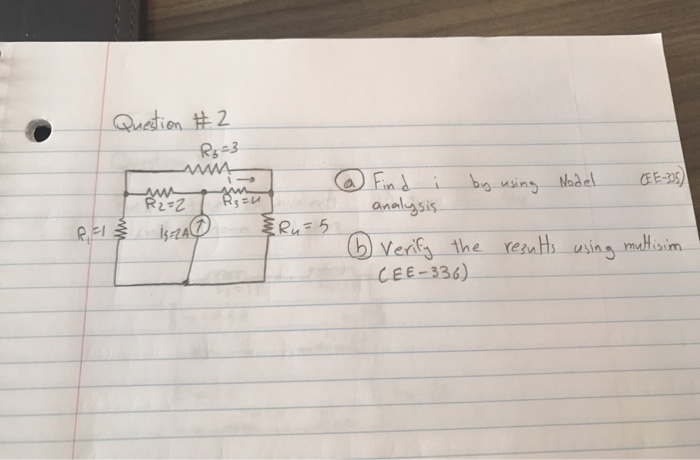 Question #2
R5=3
i →
R2=2 R3=4
R1=1 is=2A R4=5
(a) Find i by using Nodel (EE-335)
analysis
(b) Verify the results using multisim
(EE-336)